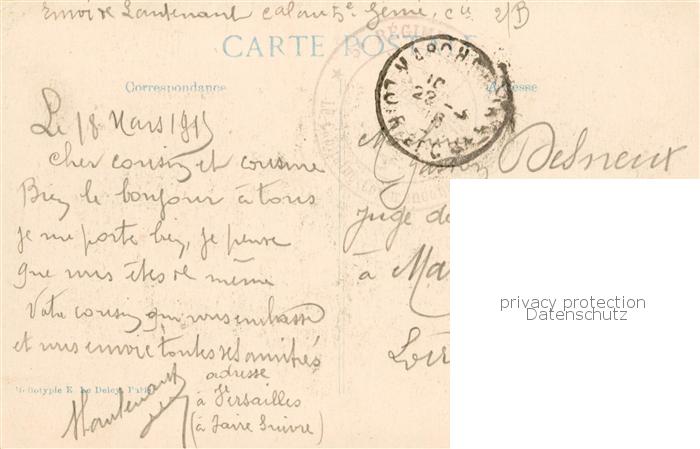 Envoi de Lautenant caloau 5e Génie, cie 2/B
CARTE POSTALE
RÉGIM
Correspondance
Adresse
Le 18 Mars 1915
cher cousin et cousine
Bien le bonjour à tous
je me porte bien, je pense
que vous êtes de même
Votre cousin qui vous embrasse
et vous envoie toutes ses amitiés
adresse
à Versailles
(à faire suivre)
Héliotypie E. Le Deley, Paris
Mr Gaston Desneux
juge de
à Ma
Loir
privacy protection
Datenschutz